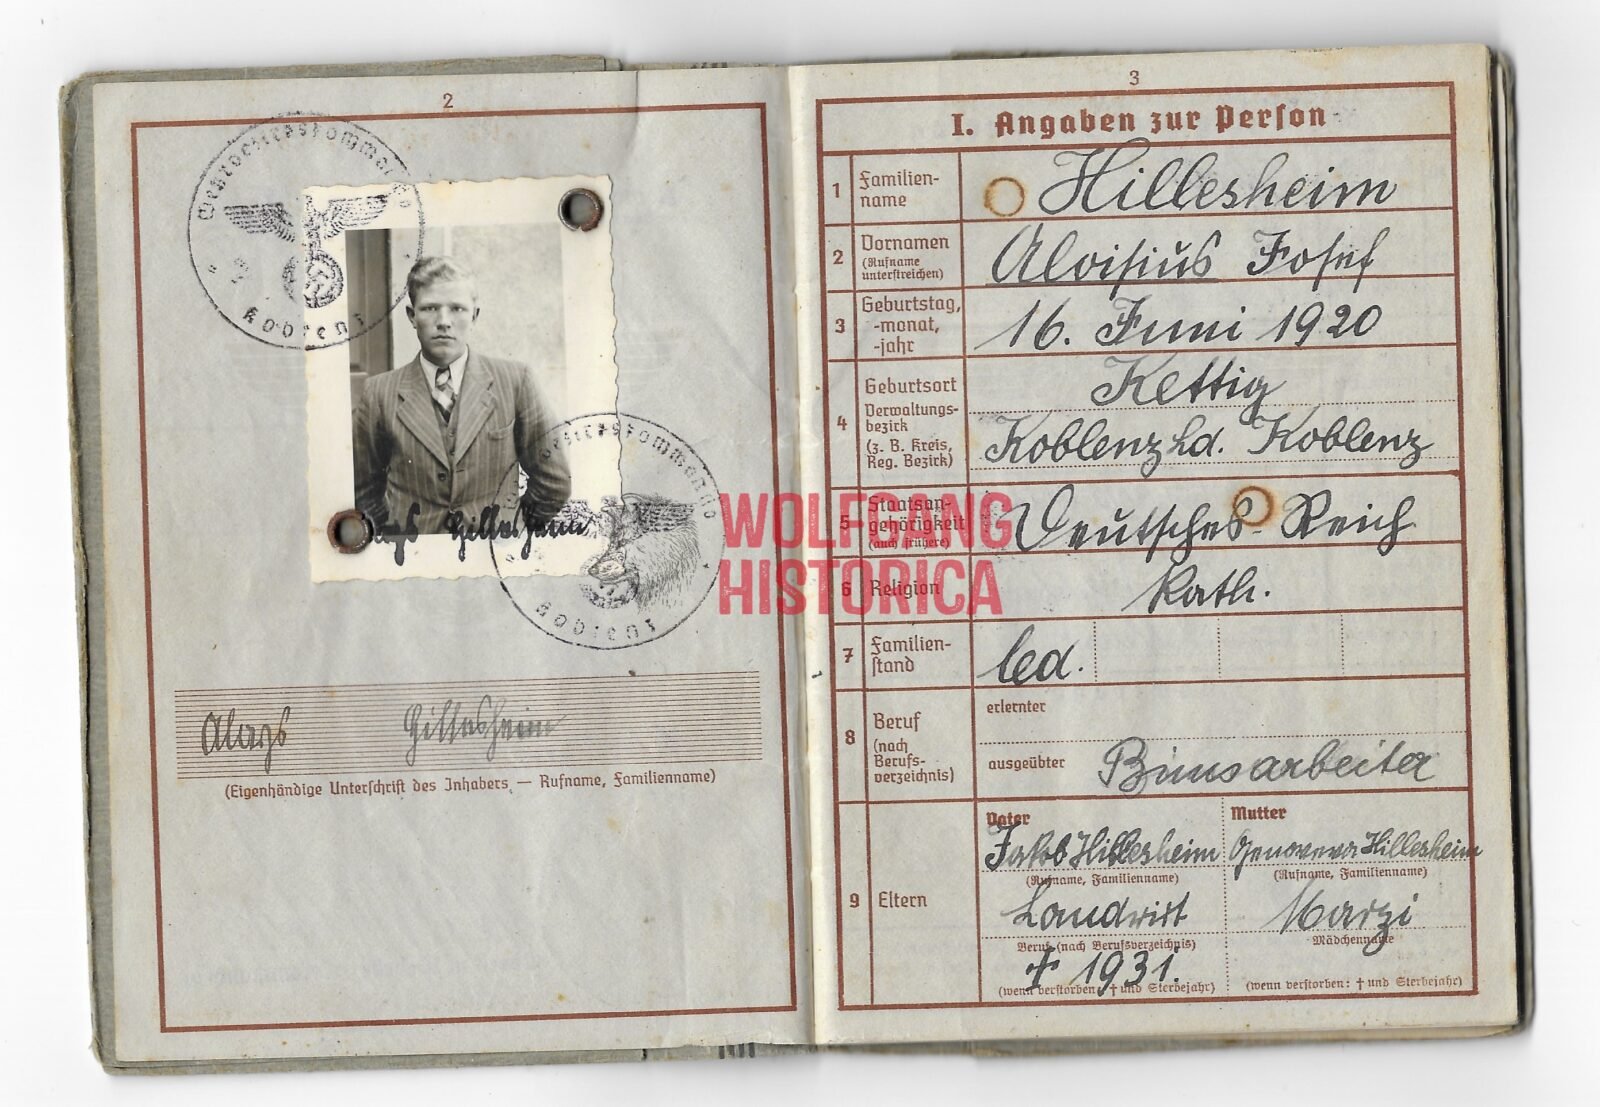 2
Wehrbezirkskommando
Koblenz
Aloys Hillesheim
Koblenz
Aloys Hillesheim
(Eigenhändige Unterschrift des Inhabers — Rufname, Familienname)
WOLFGANG
HISTORICA
3
I. Angaben zur Person
1 Familien-
name
Hillesheim
2 Vornamen
(Rufname
unterstreichen)
Aloisius Josef
3 Geburtstag,
-monat,
-jahr
16. Juni 1920
4 Geburtsort
Verwaltungs-
bezirk
(z. B. Kreis,
Reg. Bezirk)
Kettig
Koblenz Ld. Koblenz
5 Staatsan-
gehörigkeit
(auch frühere)
Deutsches Reich
6 Religion
Kath.
7 Familien-
stand
led.
8 Beruf
(nach
Berufs-
verzeichnis)
erlernter
ausgeübter Bimsarbeiter
9 Eltern
Vater Mutter
Jakob Hillesheim Genoveva Hillesheim
(Rufname, Familienname) (Rufname, Familienname)
Landwirt Marzi
Beruf (nach Berufsverzeichnis) Mädchenname
† 1931.
(wenn verstorben: † und Sterbejahr) (wenn verstorben: † und Sterbejahr)